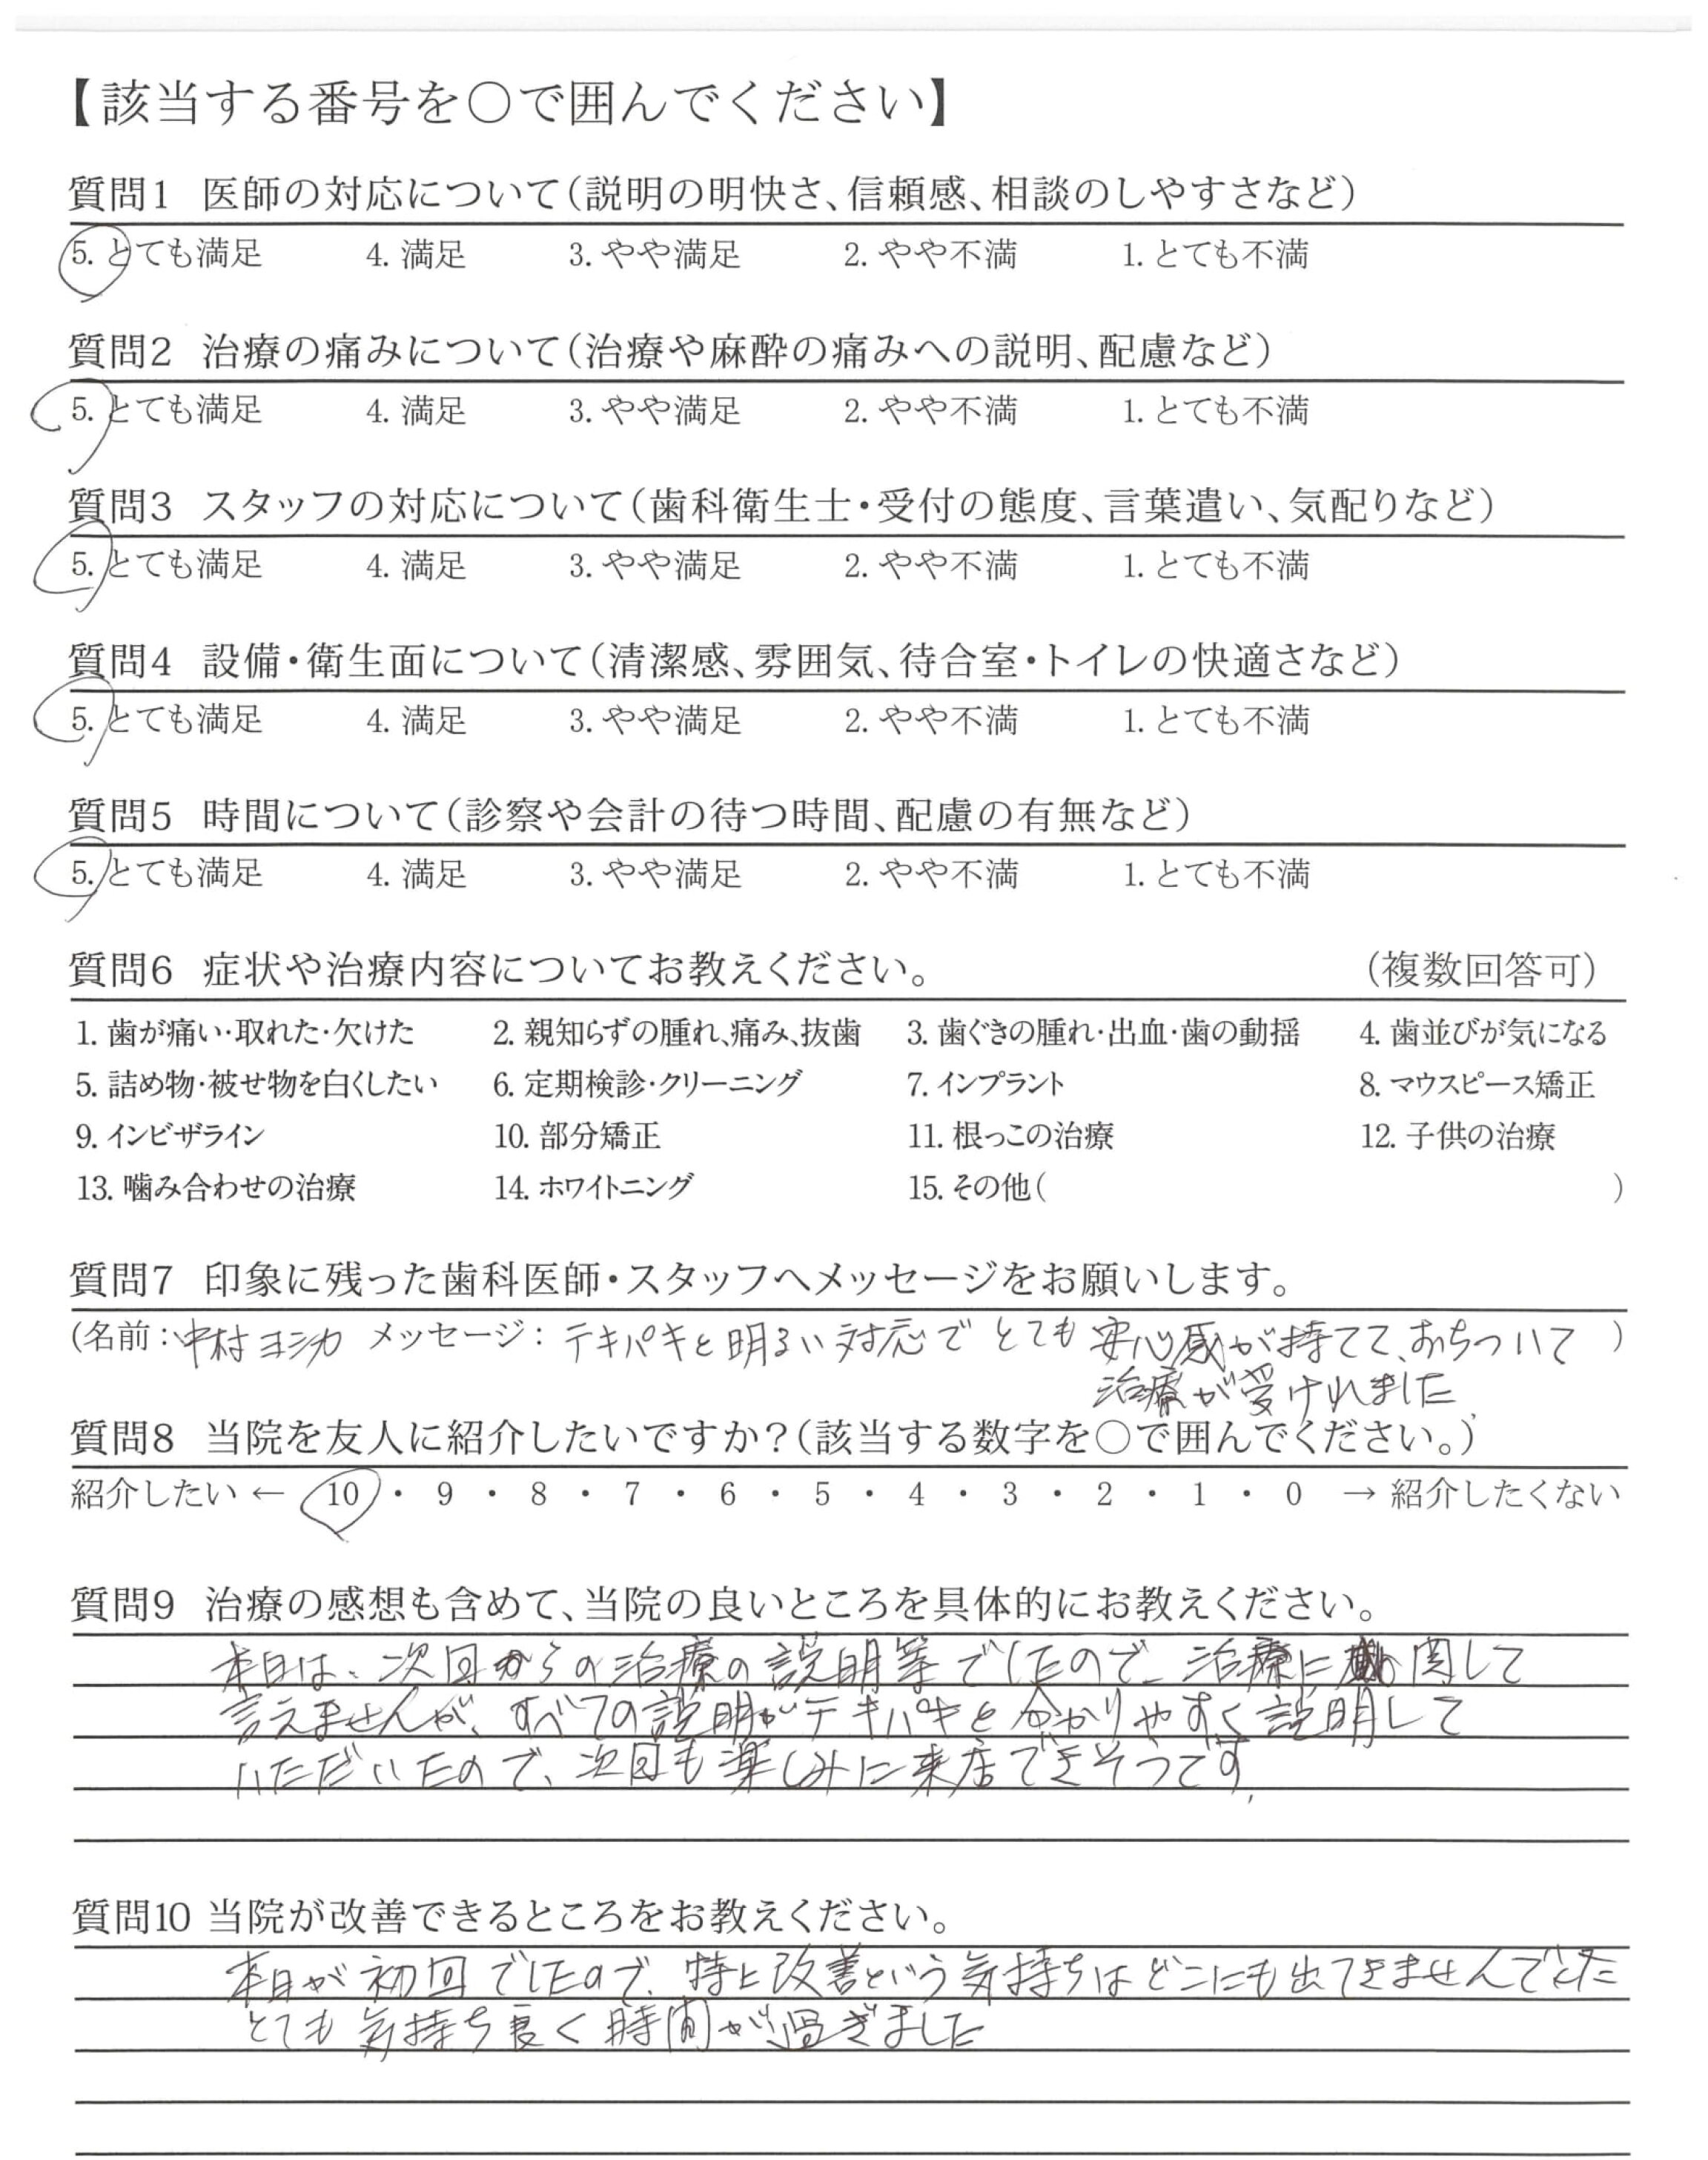 【該当する番号を○で囲んでください】
質問1 医師の対応について(説明の明快さ、信頼感、相談のしやすさなど)
5. とても満足 4. 満足 3. やや満足 2. やや不満 1. とても不満
質問2 治療の痛みについて(治療や麻酔の痛みへの説明、配慮など)
5. とても満足 4. 満足 3. やや満足 2. やや不満 1. とても不満
質問3 スタッフの対応について(歯科衛生士・受付の態度、言葉遣い、気配りなど)
5. とても満足 4. 満足 3. やや満足 2. やや不満 1. とても不満
質問4 設備・衛生面について(清潔感、雰囲気、待合室・トイレの快適さなど)
5. とても満足 4. 満足 3. やや満足 2. やや不満 1. とても不満
質問5 時間について(診察や会計の待つ時間、配慮の有無など)
5. とても満足 4. 満足 3. やや満足 2. やや不満 1. とても不満
質問6 症状や治療内容についてお教えください。 (複数回答可)
1. 歯が痛い・取れた・欠けた 2. 親知らずの腫れ、痛み、抜歯 3. 歯ぐきの腫れ・出血・歯の動揺 4. 歯並びが気になる
5. 詰め物・被せ物を白くしたい 6. 定期検診・クリーニング 7. インプラント 8. マウスピース矯正
9. インビザライン 10. 部分矯正 11. 根っこの治療 12. 子供の治療
13. 噛み合わせの治療 14. ホワイトニング 15. その他( )
質問7 印象に残った歯科医師・スタッフへメッセージをお願いします。
(名前:中村ヨシカ メッセージ:テキパキと明るい対応で とても 安心感が持てて、おちついて )
治療が受けれました、
質問8 当院を友人に紹介したいですか?(該当する数字を○で囲んでください。)
紹介したい ← 10 ・ 9 ・ 8 ・ 7 ・ 6 ・ 5 ・ 4 ・ 3 ・ 2 ・ 1 ・ 0 → 紹介したくない
質問9 治療の感想も含めて、当院の良いところを具体的にお教えください。
本日は、次回からの治療の説明等でしたので、治療に関して
言えませんが、すべての説明がテキパキと分かりやすく説明して
いただいたので、次回も楽しみに来店できそうです、
質問10 当院が改善できるところをお教えください。
本日が初回でしたので、特に改善という気持ちはどこにも出てきませんでした
とても気持ち良く時間が過ぎました